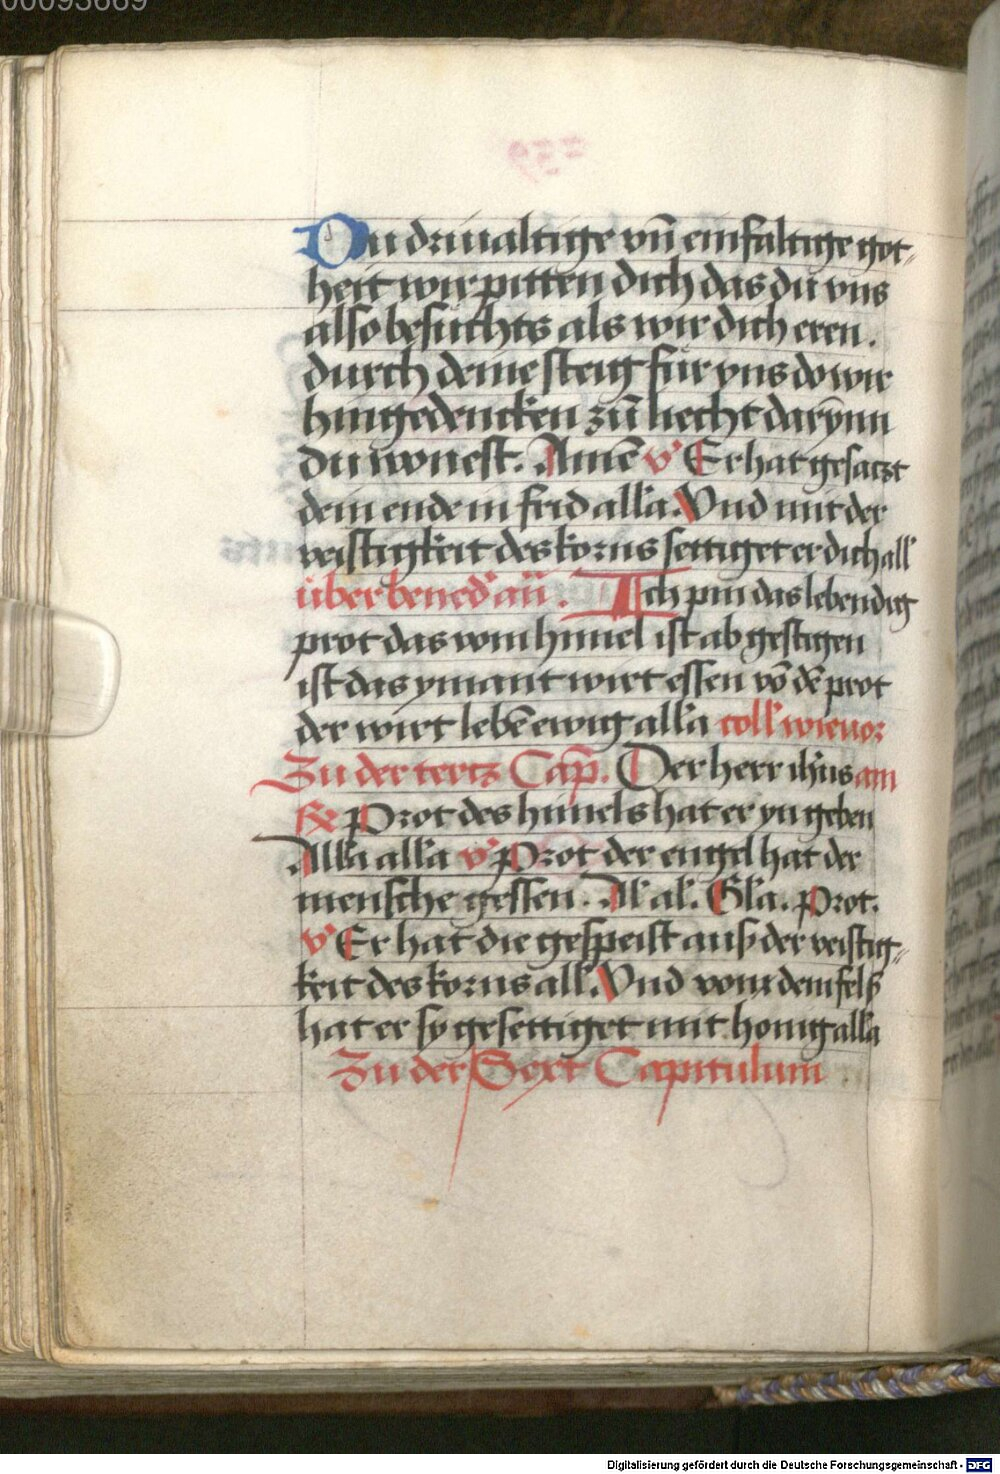 00093669
Du driualtige vn̄ einfaltige got-
heit wir pitten dich das du vns
also besuchts als wir dich eren.
durch deine steig für vns do wir
hin gedencken zu liecht darynn
du wonest. Amē v̉ Er hat gesaczt
dein ende in frid all'a. Vnd mit der
veistigkeit des korns settiget er dich all'
über bened' an̄. Ich pin das lebendig
prot das vom himel ist ab gestigen
ist das ymant wirt essen vō dē prot
der wirt lebē ewig all'a coll' wie vor
Zu der tertz Cap. Der herr ih'us am
R Prot des himels hat er yn geben
All'a all'a v̉ Prot der engel hat der
mensche gessen. All' al'. Gl'a. Prot.
v̉ Er hat die gespeist auß der veistig-
keit des korns all'. Vnd vom dem felß
hat er sy gesettiget mit honig all'a
Zu der Sext Capitulum
Digitalisierung gefördert durch die Deutsche Forschungsgemeinschaft - DFG